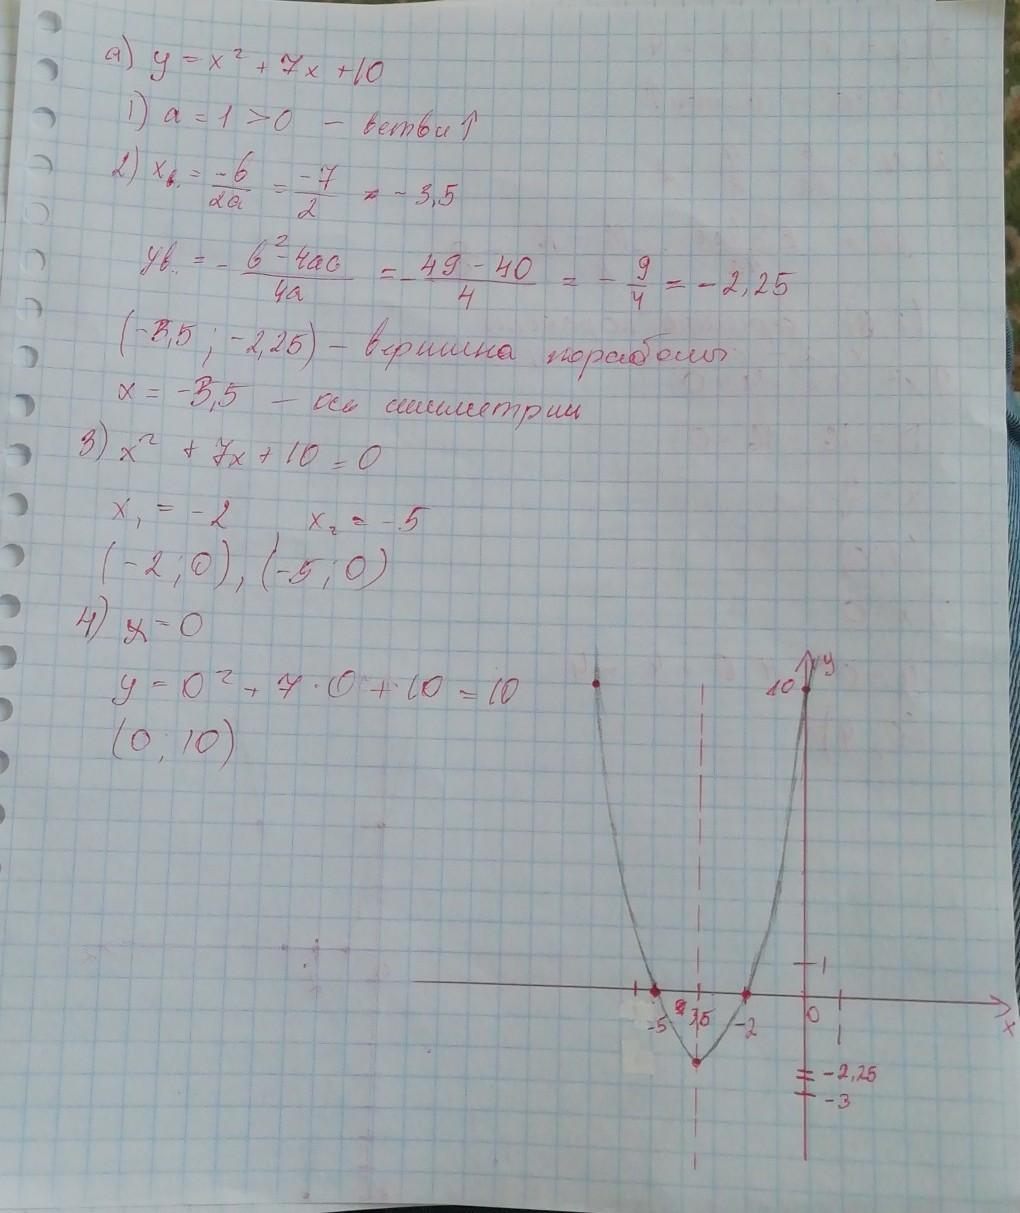 а) y = x² + 7x + 10
1) a = 1 > 0 – ветви ↑
2) xв. = -в/2a = -7/2 = -3,5
yв. = - в² - 4ac/4a = - 49 - 40/4 = - 9/4 = -2,25
(-3,5 ; -2,25) – вершина параболы
x = -3,5 – ось симметрии
3) x² + 7x + 10 = 0
x₁ = -2 , x₂ = -5
(-2 ; 0), (-5 ; 0)
4) x = 0
y = 0² + 7 · 0 + 10 = 10
(0 ; 10)
y
10
1
-5
-3,5
-2
0
1
x
-2,25
-3